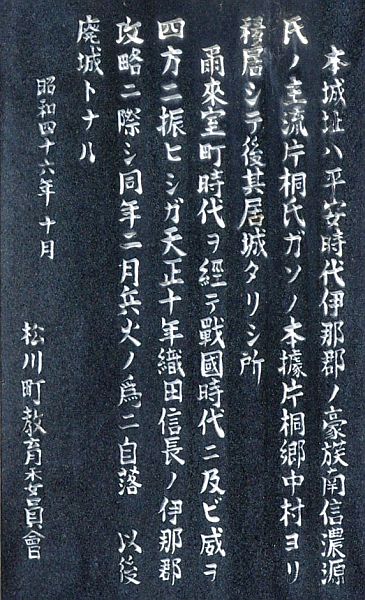 本城址ハ平安時代伊那郡ノ豪族南信濃源
氏ノ主流片桐氏ガソノ本據片桐郷中村ヨリ
移居シテ後其居城タリシ所
爾來室町時代ヲ經テ戰國時代ニ及ビ威ヲ
四方ニ振ヒシガ天正十年織田信長ノ伊那郡
攻略ニ際シ同年二月兵火ノ爲ニ自落 以後
廃城トナル
昭和四十六年 十月
松川町教育委員會